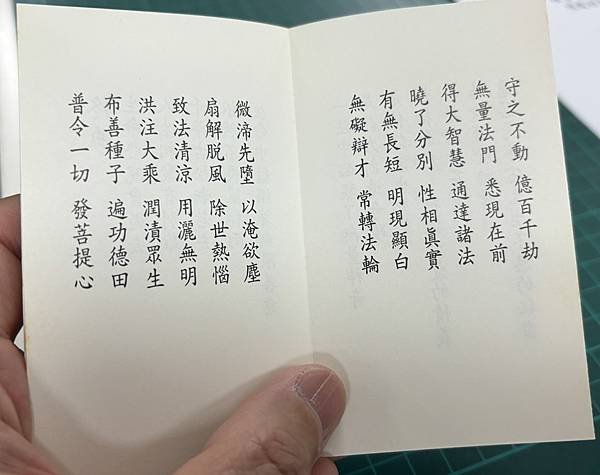 守之不動 億百千劫
無量法門 悉現在前
得大智慧 通達諸法
曉了分別 性相真實
有無長短 明現顯白
無礙辯才 常轉法輪
微渧先墮 以淹欲塵
扇解脫風 除世熱惱
致法清涼 用灑無明
洪注大乘 潤漬眾生
布善種子 遍功德田
普令一切 發菩提心